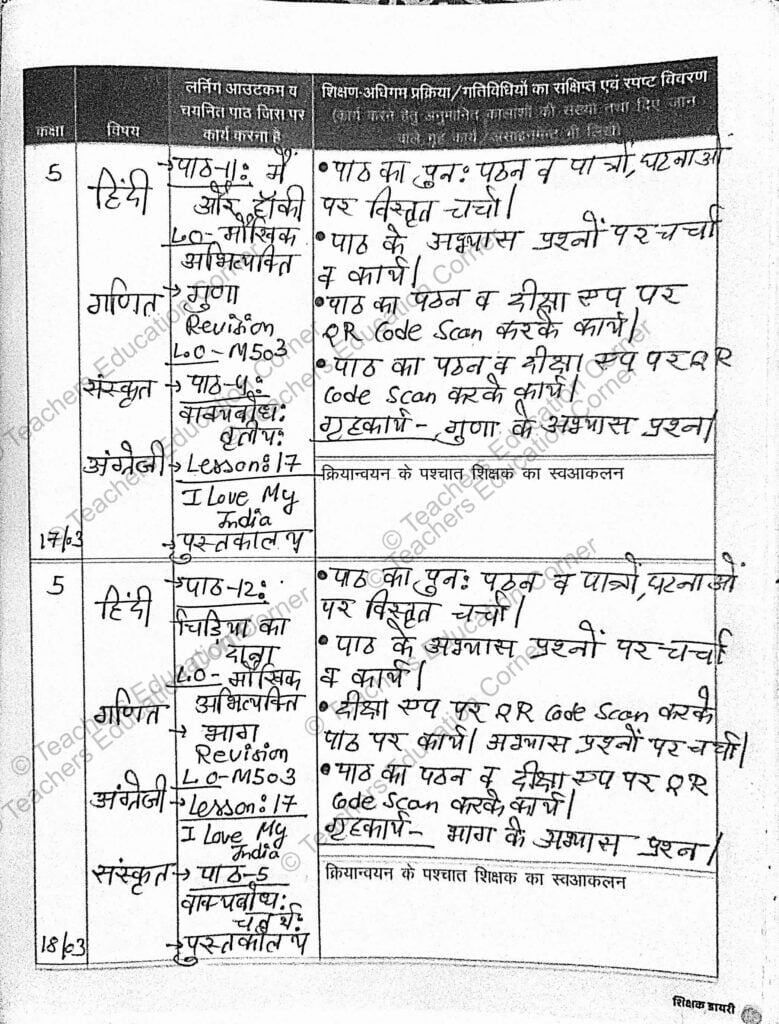 कक्षा
विषय
लर्निंग आउटकम व
चयनित पाठ जिस पर
कार्य करना है
शिक्षण-अधिगम प्रक्रिया/गतिविधियों का संक्षिप्त एवं स्पष्ट विवरण
(कार्य करने हेतु अनुमानित कालांशों की संख्या तथा दिए जाने
वाले गृह कार्य/असाइनमेन्ट भी लिखें)
5
हिंदी
→पाठ-11: मैं
और टॉकी
LO- मौखिक
अभिव्यक्ति
गणित
→ गुणा
Revision
LO-M503
संस्कृत
→ पाठ-4:
वाक्यबोध:
तृतीय:
अंग्रेजी
→ Lesson:17
I Love My
India
17/03
→पुस्तकालय
• पाठ का पुन: पठन व पात्रों, घटनाओं
पर विस्तृत चर्चा।
• पाठ के अभ्यास प्रश्नों पर चर्चा
व कार्य।
• पाठ का पठन व दीक्षा एप पर
QR Code Scan करके कार्य।
• पाठ का पठन व दीक्षा एप पर QR
Code Scan करके कार्य।
गृहकार्य- गुणा के अभ्यास प्रश्न।
क्रियान्वयन के पश्चात शिक्षक का स्वआकलन
5
हिंदी
→पाठ-12:
चिड़िया का
दाना
LO- मौखिक
अभिव्यक्ति
गणित
→ भाग
Revision
LO-M503
अंग्रेजी
→Lesson:17
I Love My
India
संस्कृत
→ पाठ-5
वाक्यबोध:
चतुर्थ:
18/03
→पुस्तकालय
• पाठ का पुन: पठन व पात्रों, घटनाओं
पर विस्तृत चर्चा।
• पाठ के अभ्यास प्रश्नों पर चर्चा
व कार्य।
• दीक्षा एप पर QR Code Scan करके
पाठ पर कार्य। अभ्यास प्रश्नों पर चर्चा।
• पाठ का पठन व दीक्षा एप पर QR
Code Scan करके कार्य।
गृहकार्य- भाग के अभ्यास प्रश्न।
क्रियान्वयन के पश्चात शिक्षक का स्वआकलन
शिक्षक डायरी
© Teachers Education Corner
© Teachers Education Corner
© Teachers Education Corner
© Teachers Education Corner